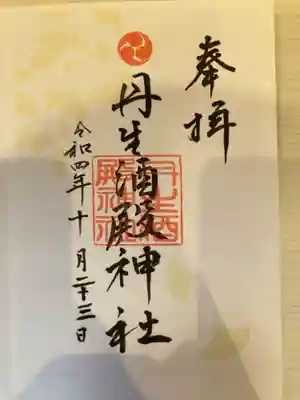 奉拝
丹生酒殿神社
丹生酒殿神社
令和四年十月二十三日